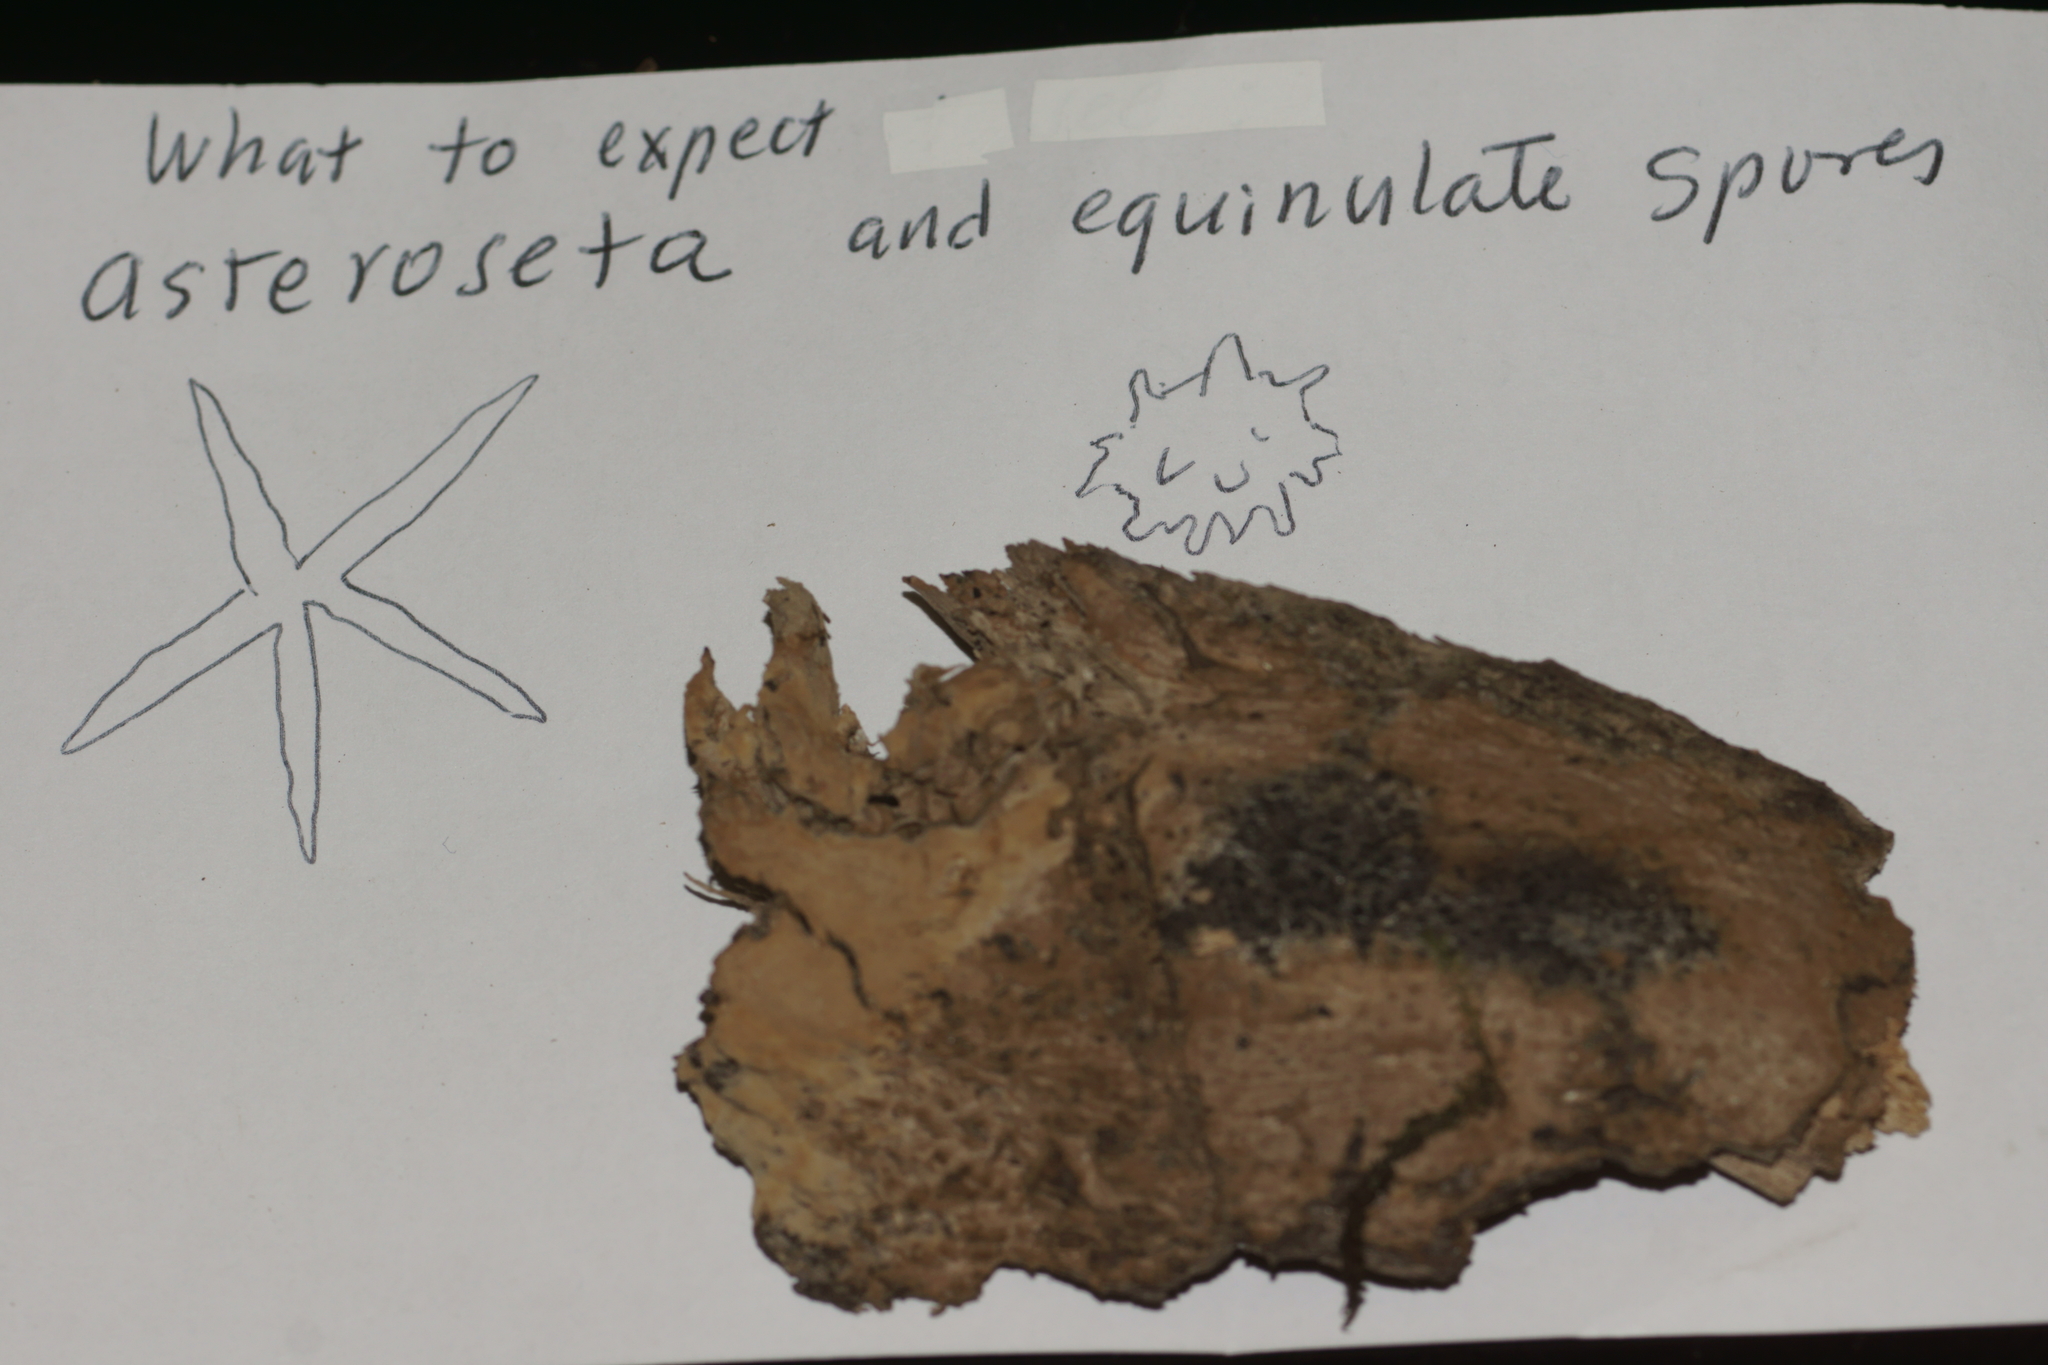 What to expect
asteroseta and equinulate spores